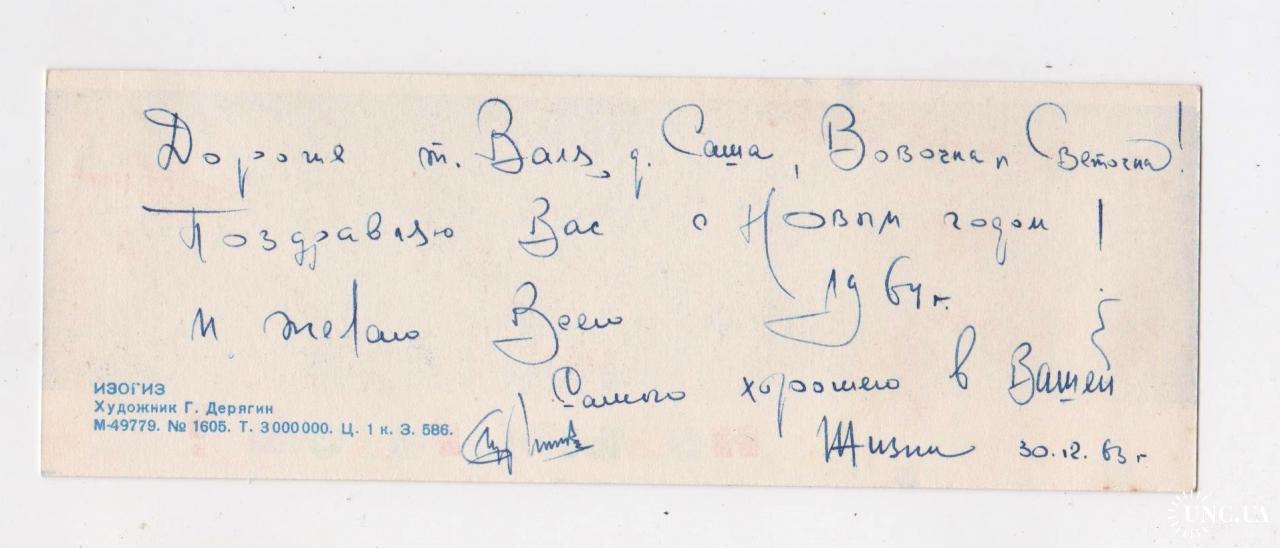 Дорогие т. Валя, д. Саша, Вовочка и Светочка!
Поздравляю Вас с Новым годом!
1964 г.
и желаю Всего
Самого хорошего в Вашей
Жизни 30.12.63 г
ИЗОГИЗ
Художник Г. Дерягин
М-49779. № 1605. Т. 3 000 000. Ц. 1 к. З. 586.
UNC.UA